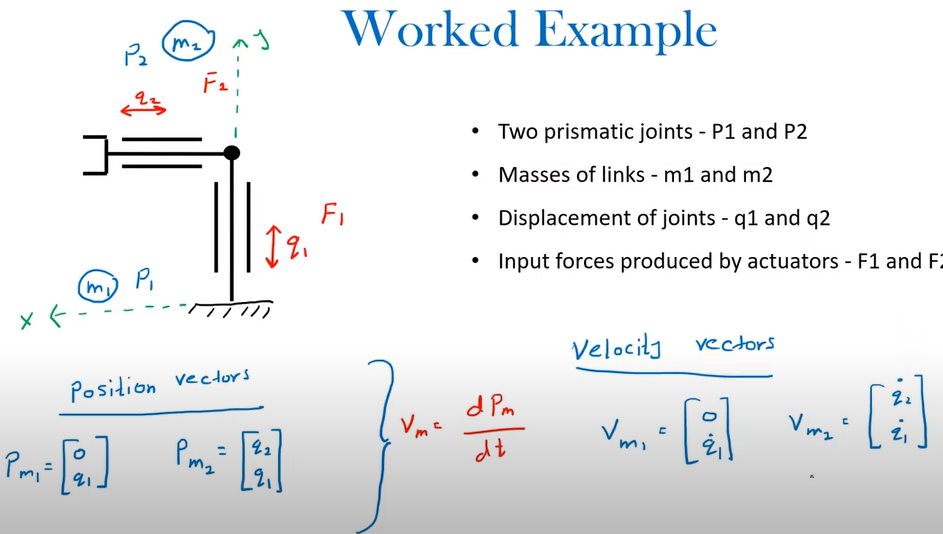 Worked Example
P₂ m₂ y
F₂
q₂
F₁
q₁
m₁ P₁
x
• Two prismatic joints - P1 and P2
• Masses of links - m1 and m2
• Displacement of joints - q1 and q2
• Input forces produced by actuators - F1 and F2
Position vectors
Pm₁ = [0 q₁] Pm₂ = [q₂ q₁]
Vm = dPm/dt
Velocity vectors
Vm₁ = [0 q̇₁] Vm₂ = [q̇₂ q̇₁]